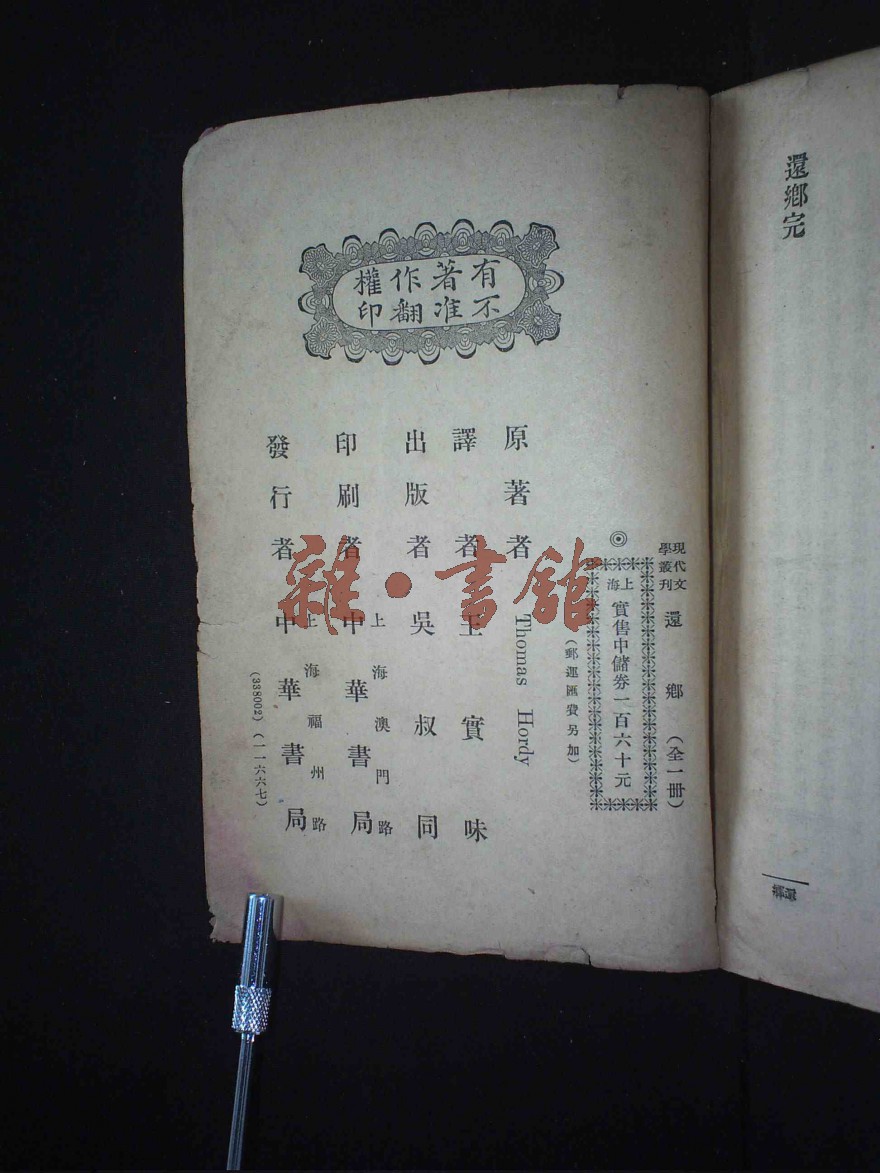 還鄉完
還鄉
現代文學叢刊
還鄉（全一冊）
◎
上海
實售中儲券一百六十元
（郵運匯費另加）
有著作權
不准翻印
原著者 Thomas Hordy
譯者 王實味
出版者 吳叔同
印刷者 上海澳門路 中華書局
發行者 上海福州路 中華書局
（338002）（一一六六七）
雜·書館